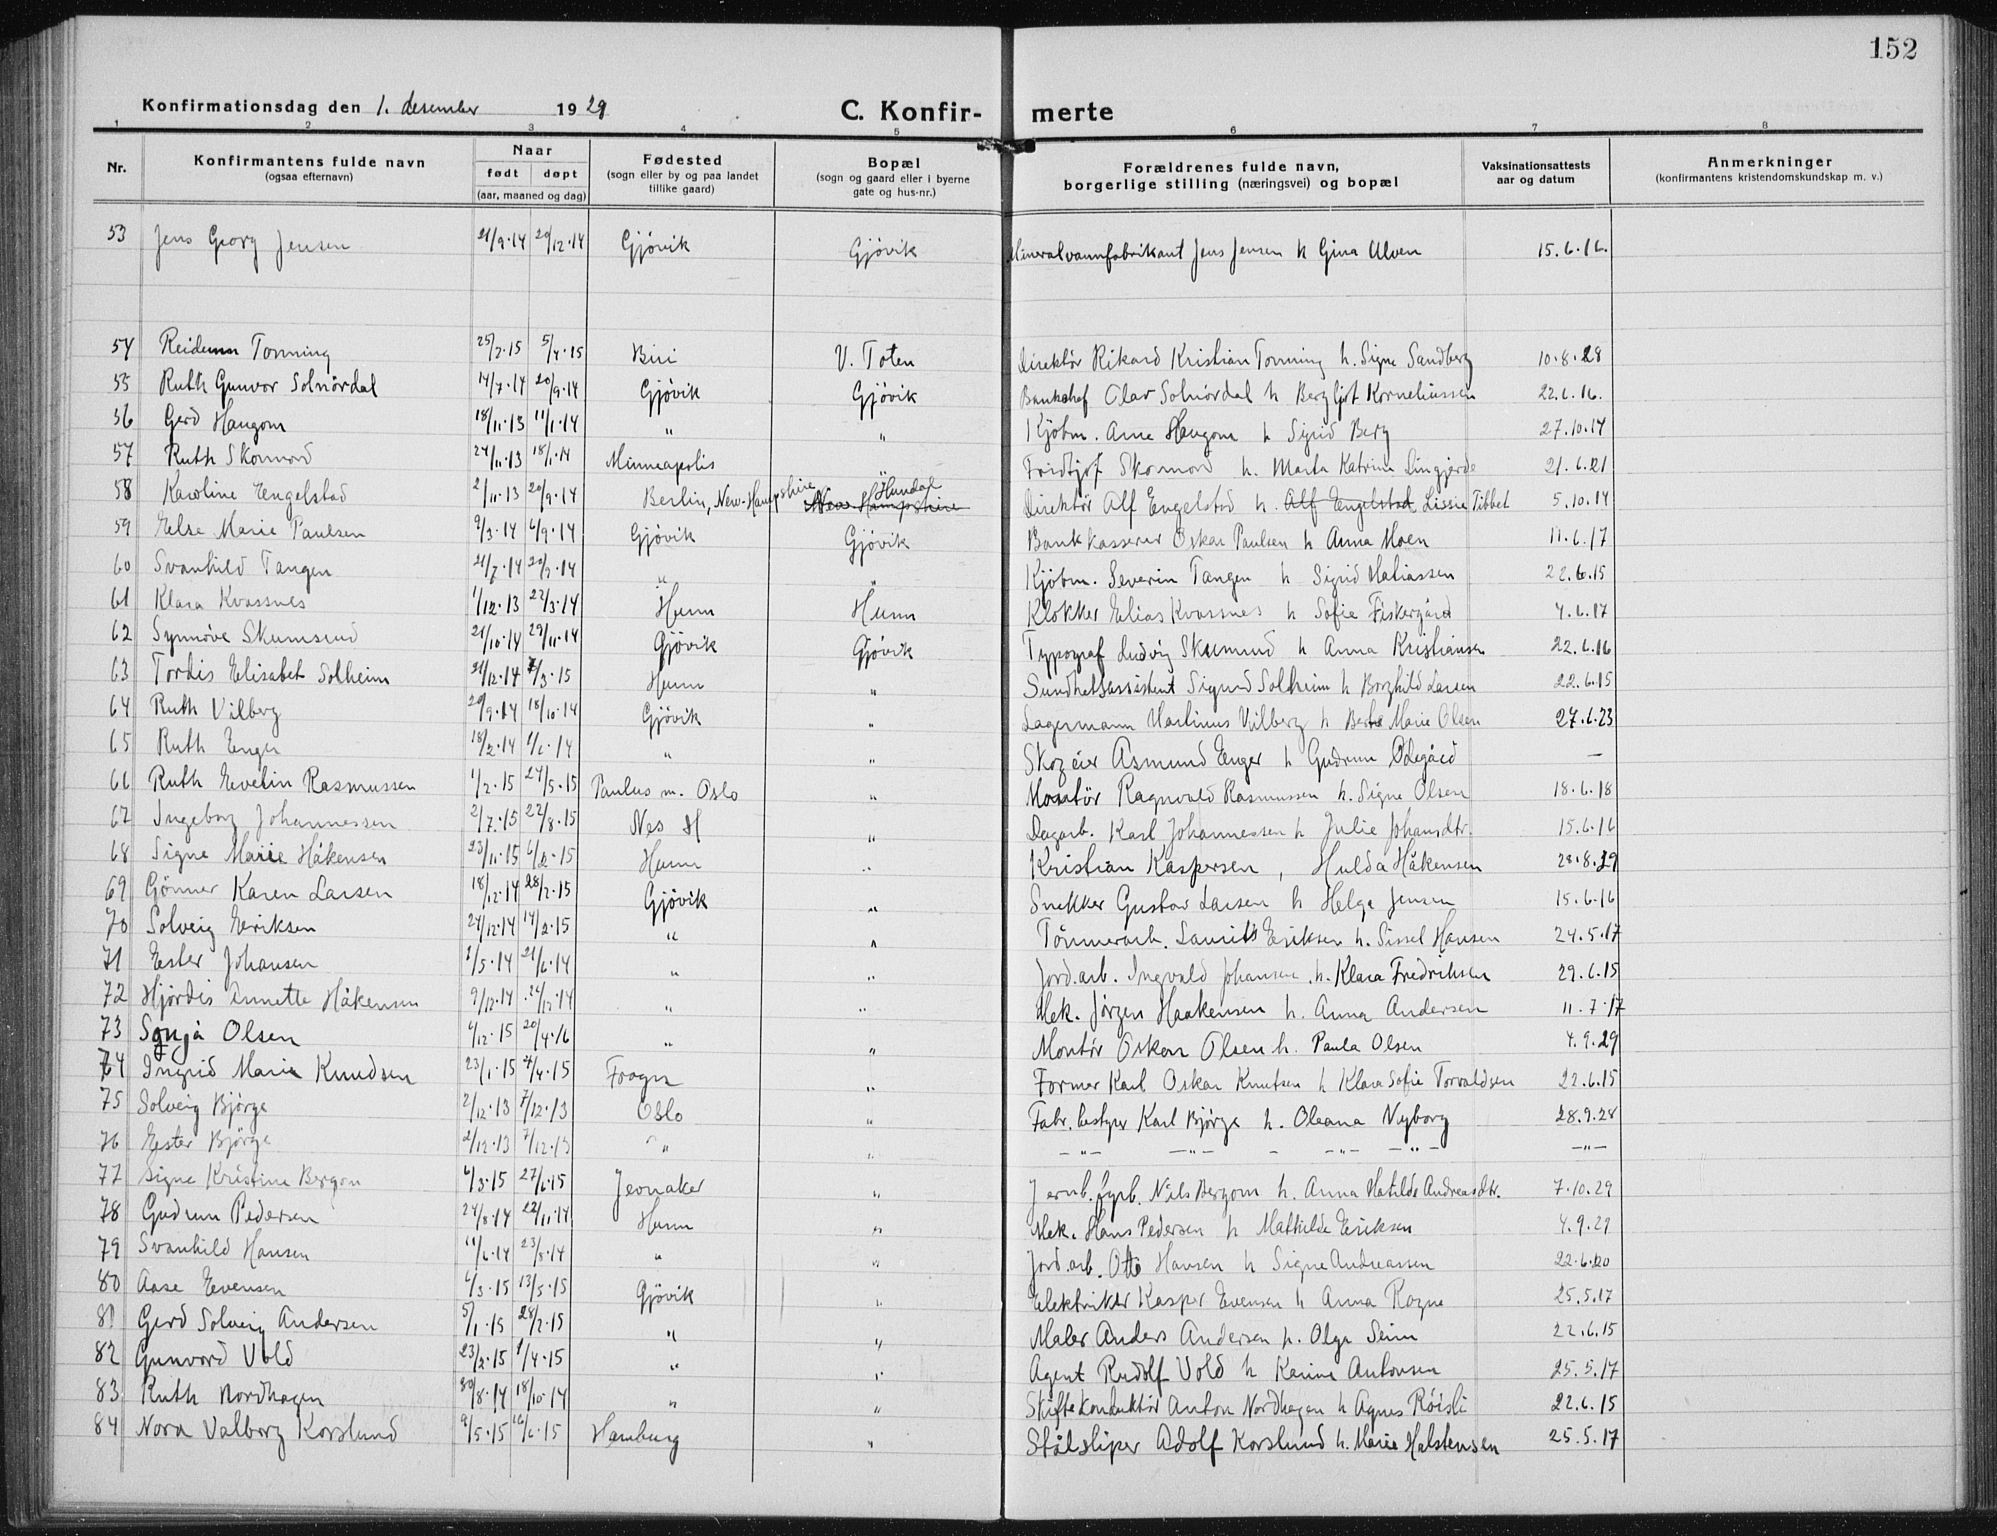 152
Konfirmationsdag den 1. desember 1929 C. Konfir- merte
1 2 3 4 5 6 7 8
Nr. Konfirmantens fulde navn (ogsaa efternavn) Naar født døpt (aar, maaned og dag) Fødested (sogn eller by og paa landet tillike gaard) Bopæl (sogn og gaard eller i byerne gate og hus-nr.) Forældrenes fulde navn, borgerlige stilling (næringsvei) og bopæl Vaksinationsattests aar og datum Anmerkninger (konfirmantens kristendomskundskap m. v.)
53 Jens Georg Jensen 21/9.14 29/12.14 Gjövik Gjövik Mineralvannfabrikant Jens Jensen h Gina Alven 15.6.16.
54 Reidunn Tonning 25/2.15 5/4.15 Biri V. Toten Direktör Rikard Kristian Tonning h. Signe Sandberg 10.8.28
55 Ruth Gunvor Solnördal 14/7.14 20/9.14 Gjövik Gjövik Banksjef Olav Solnördal h Bergljot Korneliussen 22.6.16.
56 Gerd Haugom 18/11.13 11/1.14 " " Kjöbm. Arne Haugom h Sigrid Berg 27.10.14
57 Ruth Skomord 24/11.13 18/1.14 Minneapolis " Fridtjof Skomord h. Marta Katrine Lingjerde 21.6.21
58 Karoline Engelstad 2/11.13 20/9.14 Berlin, New-Hampshire New-Hampshire Hundal Direktör Alf Engelstad h. Alf Engelstad Lissie Tibbet 5.10.14
59 Else Marie Paulsen 9/3.14 6/9.14 Gjövik Gjövik Bankkasserer Oskar Paulsen h Anna Moen 11.6.17
60 Svanhild Tangen 21/7.14 20/9.14 " " Kjöbm. Severin Tangen h Sigrid Matiassen 22.6.15
61 Klara Kvassnes 1/12.13 22/3.14 Hunn Hunn Klokker Elias Kvassnes h Sofie Fiskergård 4.6.17
62 Synnöve Skumsrud 21/10.14 29/11.14 Gjövik Gjövik Typograf Ludvig Skumsrud h Anna Kristiansen 22.6.16
63 Tordis Elisabet Solheim 21/12.14 7/3.15 Hunn " Sundhetsassistent Sigurd Solheim h Borghild Larsen 22.6.15
64 Ruth Vilberg 20/9.14 18/10.14 Gjövik " Lagermann Martinus Vilberg h Berte Marie Olsen 27.6.23
65 Ruth Enger 18/2.14 1/6.14 " " Skogeier Asmund Enger h Gudrun Ødegård –
66 Ruth Evelin Rasmussen 1/2.15 24/5.15 Paulus m. Oslo " Montör Ragnvald Rasmussen h. Signe Olsen 18.6.18
67 Ingeborg Johannessen 2/7.15 22/8.15 Nes H " Dagarb. Karl Johannessen h Julie Johansdtr. 15.6.16
68 Signe Marie Håkensen 23/11.15 6/2.15 Hunn " Kristian Kaspersen, Hulda Håkensen 28.8.29
69 Gönner Karen Larsen 18/12.14 28/2.15 Gjövik " Snekker Gustav Larsen h Helga Jensen 15.6.16
70 Solveig Eriksen 24/12.14 14/2.15 " " Tömmerarb. Laurits Eriksen h. Sissel Hansen 24.5.17
71 Ester Johansen 1/5.14 21/6.14 " " Jord.arb. Ingvald Johansen h. Klara Fredriksen 29.6.15
72 Hjördis Annette Håkensen 9/12.14 26/12.14 " " Mek. Jörgen Haakensen h. Anna Andersen 11.7.17
73 Sonja Olsen 4/12.15 20/4.16 " " Montör Oskar Olsen h. Paula Olsen 4.9.29
74 Ingrid Marie Knudsen 23/1.15 4/4.15 Frogn " Former Karl Oskar Knutsen h Klara Sofie Torvaldsen 22.6.15
75 Solveig Bjørge 2/12.13 7/12.13 Oslo " Fabr.bestyrer Karl Bjørge h. Oleana Nyborg 28.9.28
76 Ester Björge 2/12.13 7/12.13 " " –"– –"– – –"– –"– –"–
77 Signe Kristine Bergom 6/3.15 27/6.15 Jevnaker " Jernb.fyrb. Nils Bergom h. Anna Matilde Andreasdtr. 7.10.29
78 Gudrun Pedersen 24/8.14 22/11.14 Hunn " Mek. Hans Pedersen h Mathilde Eriksen 4.9.29
79 Svanhild Hansen 11/6.14 23/8.14 " " Jord.arb. Otto Hansen h Signe Andreassen 22.6.20
80 Aase Evensen 6/3.15 13/5.15 Gjövik " Elektriker Kasper Evensen h Anna Rogne 25.5.17
81 Gerd Solveig Andersen 5/1.15 28/2.15 " " Maler Anders Andersen h. Olga Seim 22.6.15
82 Gunvord Vold 23/2.15 1/4.15 " " Agent Rudolf Vold h Karine Antonsen 25.5.17
83 Ruth Nordhagen 30/8.14 18/10.14 " " Skiftekonduktör Anton Nordhagen h Agnes Röisli 22.6.15
84 Nora Valborg Korslund 9/5.15 16/6.15 Hamburg " Stålsliper Adolf Korslund h. Marie Halstensen 25.5.17